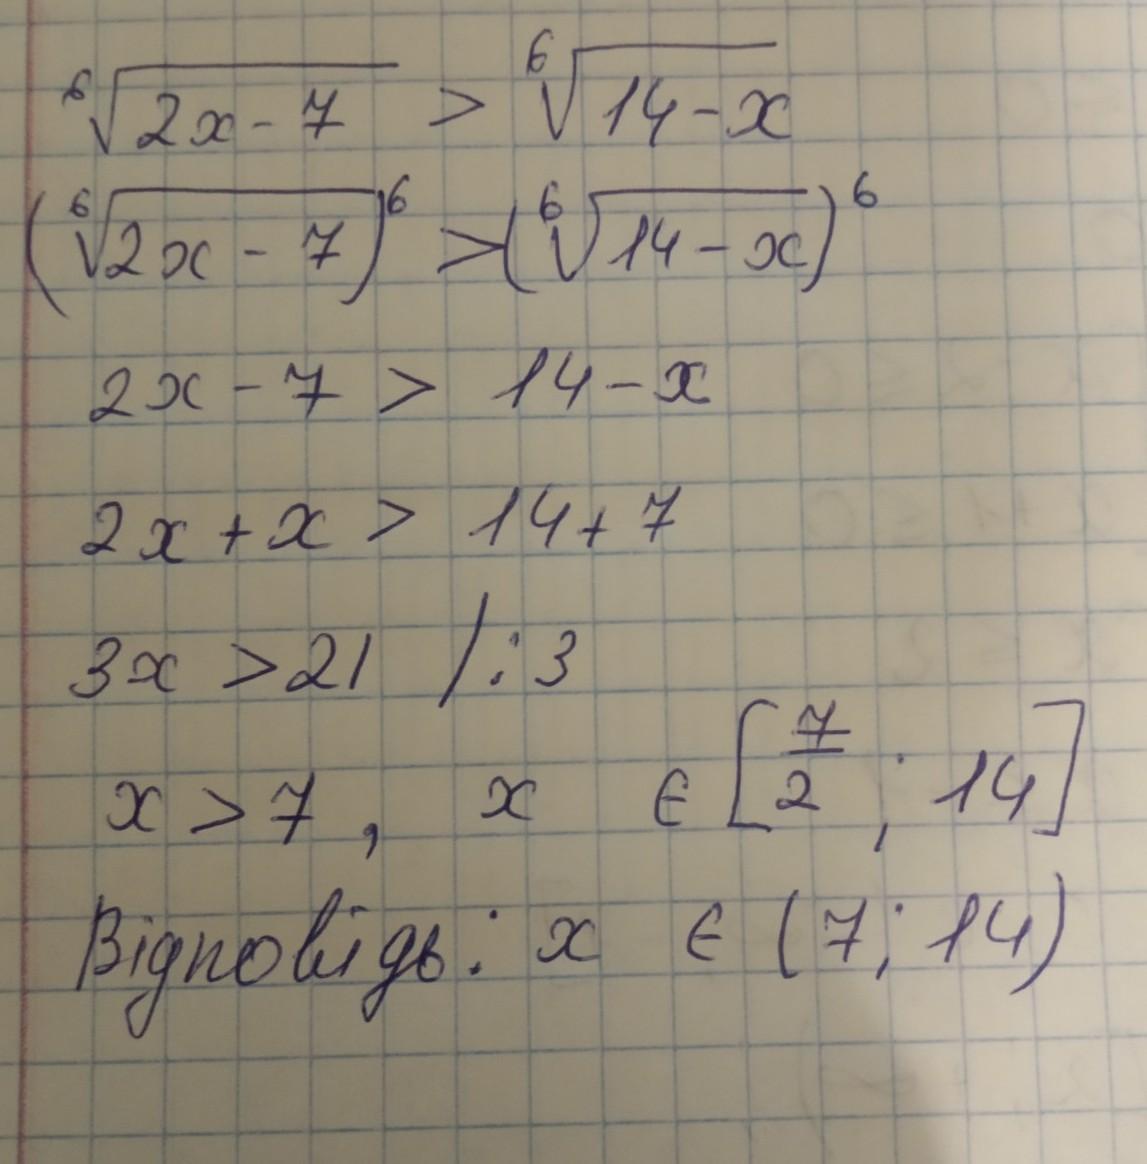 ⁶√(2x - 7) > ⁶√(14 - x)
(⁶√(2x - 7))⁶ > (⁶√(14 - x))⁶
2x - 7 > 14 - x
2x + x > 14 + 7
3x > 21 / : 3
x > 7, x ∈ [7/2 ; 14]
Відповідь: x ∈ (7; 14)